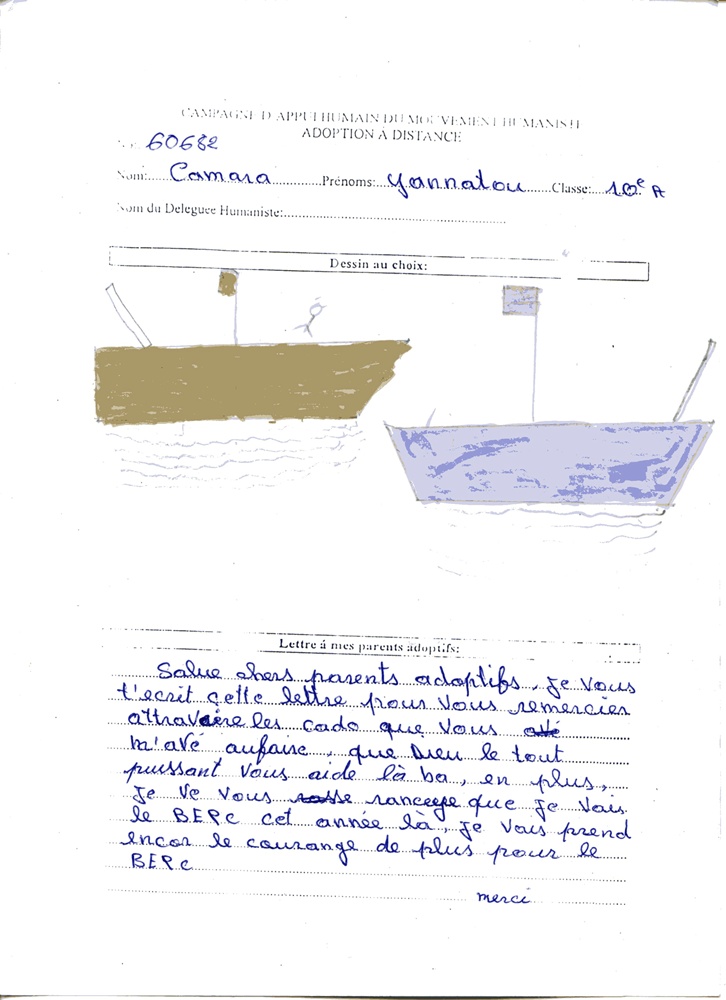 CAMPAGNE D'APPUI HUMAIN DU MOUVEMENT HUMANISTE
ADOPTION À DISTANCE
60682
Nom: Camara Prénoms: Yannatou Classe: 10e A
Nom du Deleguee Humaniste:
Dessin au choix:
Lettre á mes parents adoptifs:
Salue chers parents adoptifs, je vous
t'ecrit cette lettre pour vous remercier
attravère les cado que vous avé
m'avé aufaire, que Dieu le tout
puissant vous aide là ba, en plus,
Je ve vous ranceye que je vais
le BEPC cet année là, je vais prend
encor le courange de plus pour le
BEPC
merci